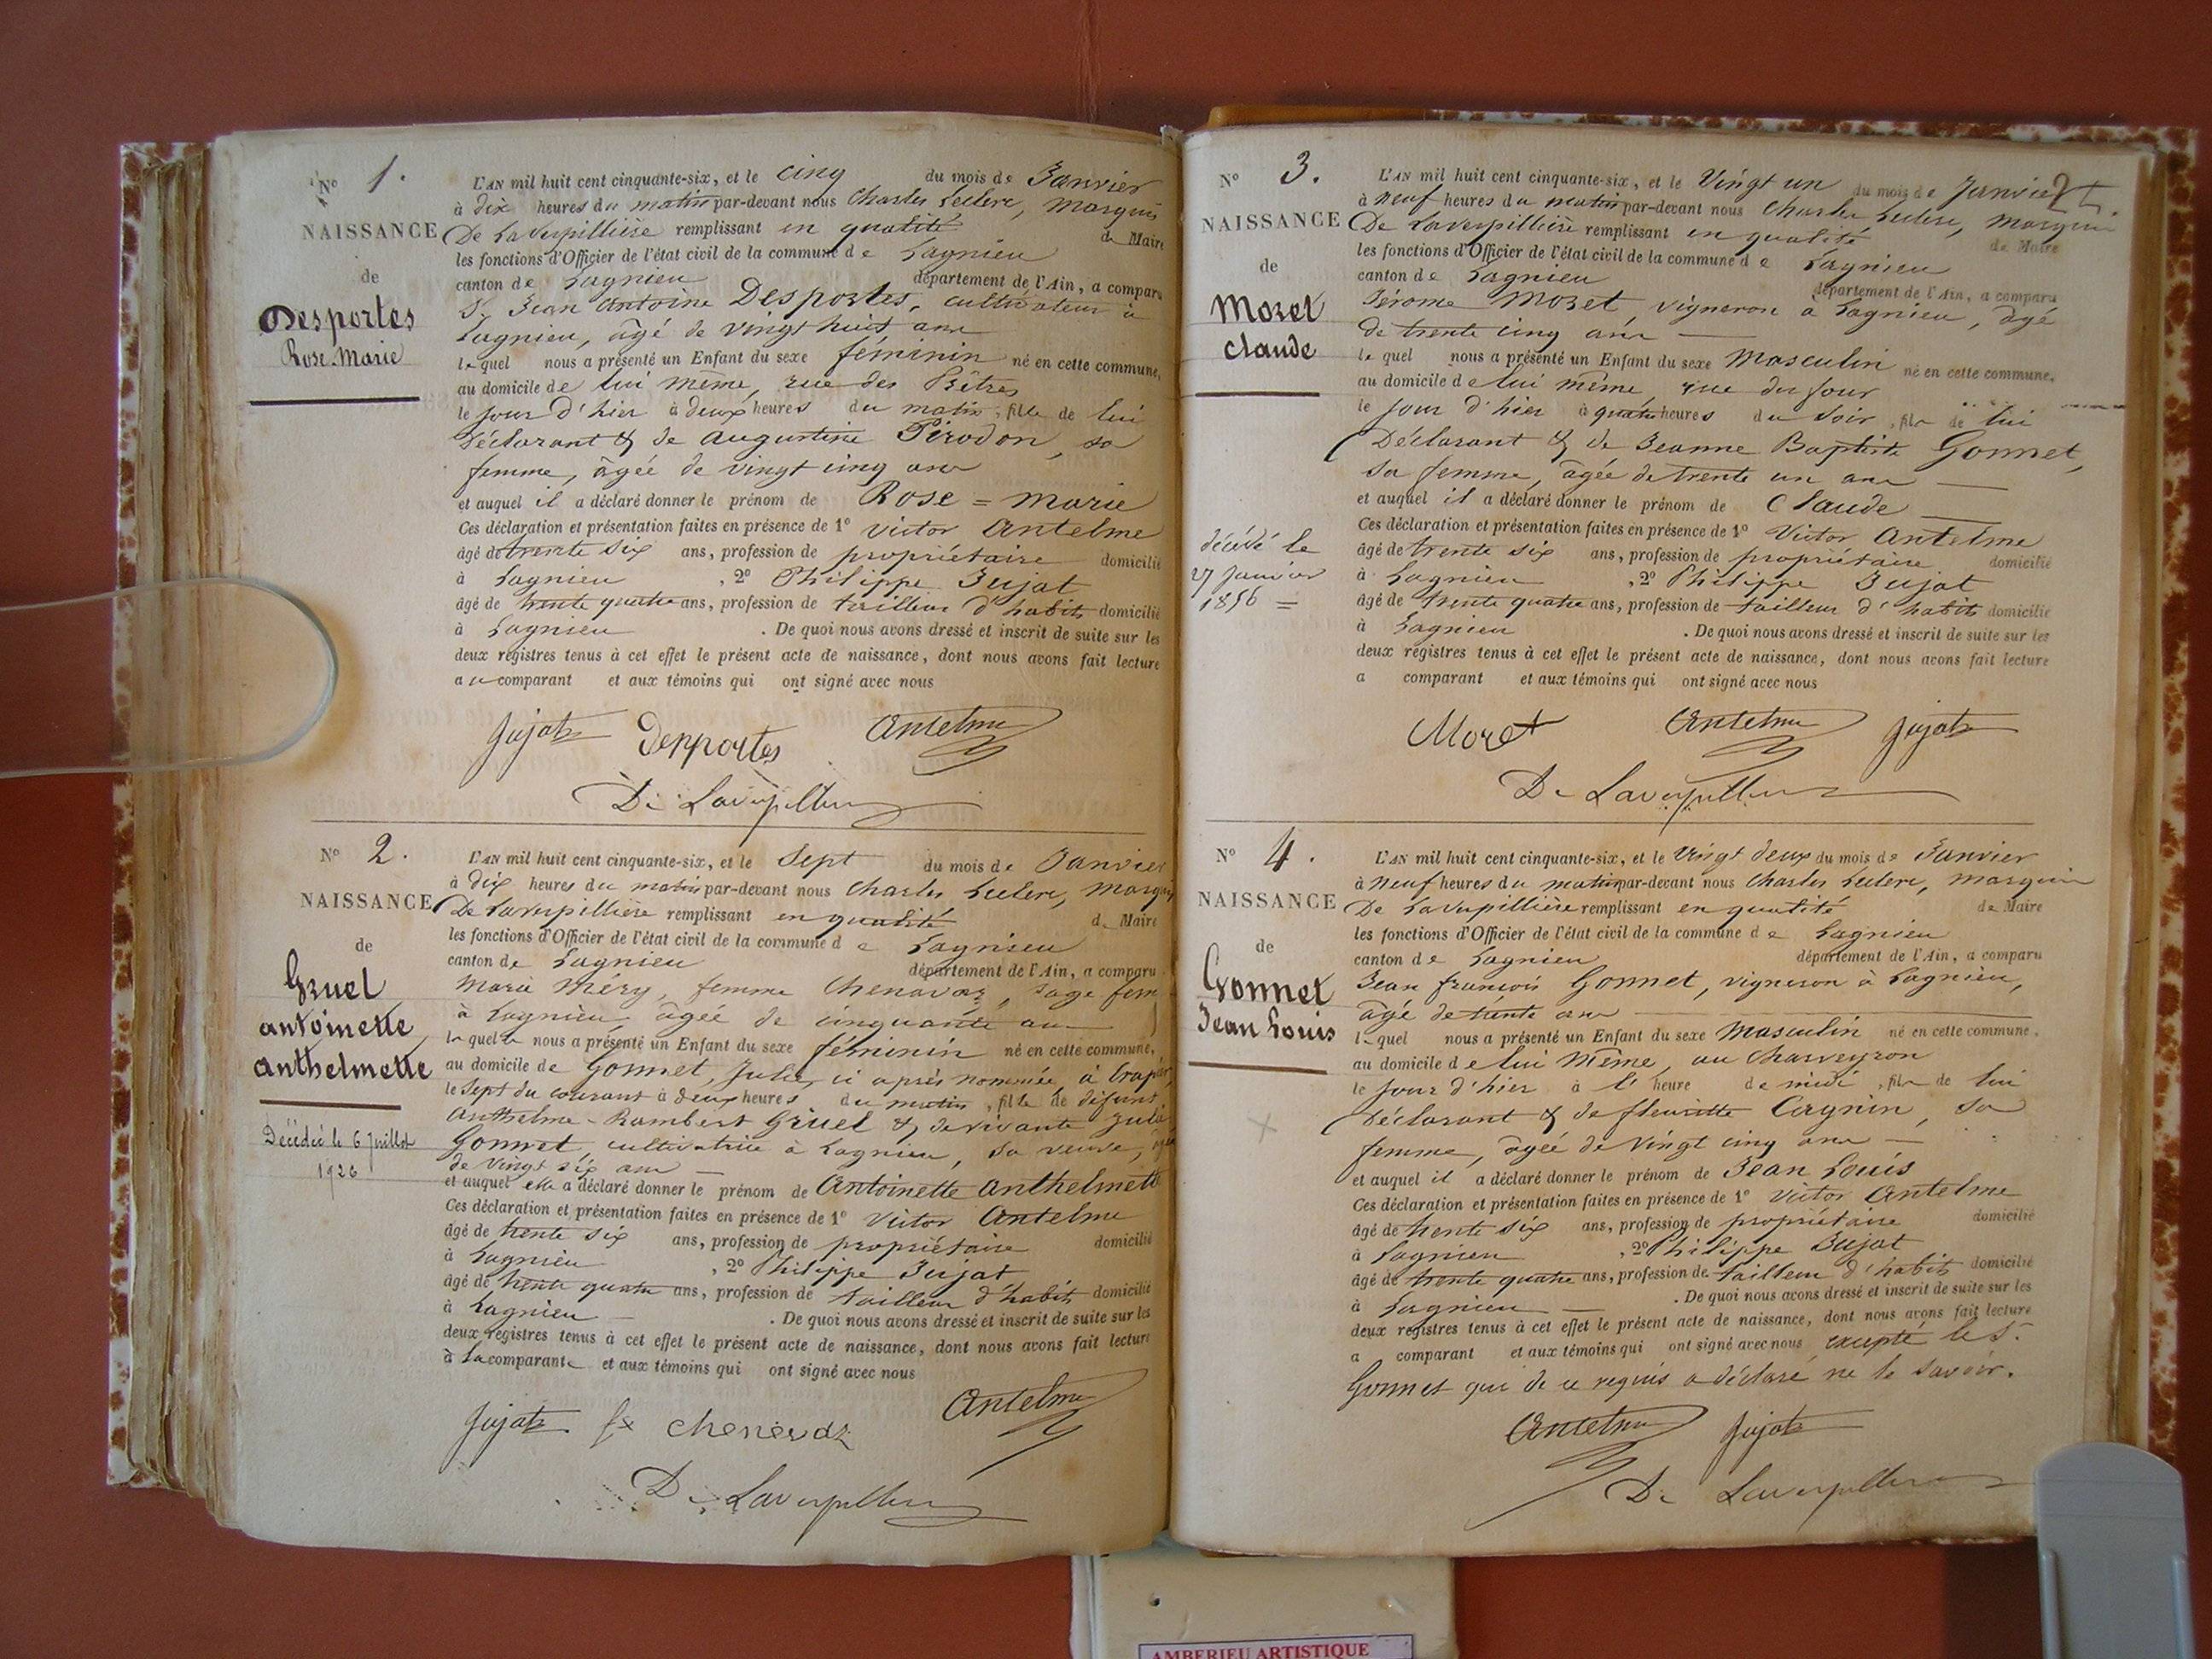 N° 1.
NAISSANCE
de
Desportes
Rose Marie
L'AN mil huit cent cinquante-six, et le cinq du mois de Janvier
à dix heures du matin par-devant nous Charles Leclerc, Marquis
De Laverpillière remplissant en qualité de Maire
les fonctions d'Officier de l'état civil de la commune de Lagnieu
canton de Lagnieu département de l'Ain, a comparu
S. Jean Antoine Desportes, cultivateur à
Lagnieu, âgé de vingt huit ans
lequel nous a présenté un Enfant du sexe féminin né en cette commune,
au domicile de lui même, rue des
le jour d'hier à deux heures du matin, fille de lui
Déclarant & de Augustine Pérodon, sa
femme, âgée de vingt cinq ans
et auquel il a déclaré donner le prénom de Rose = Marie
Ces déclaration et présentation faites en présence de 1° Victor Antelme
âgé de trente six ans, profession de propriétaire domicilié
à Lagnieu, 2° Philippe Jujat
âgé de trente quatre ans, profession de tailleur d'habits domicilié
à Lagnieu. De quoi nous avons dressé et inscrit de suite sur les
deux registres tenus à cet effet le présent acte de naissance, dont nous avons fait lecture
au comparant et aux témoins qui ont signé avec nous
Jujat Desportes Antelme
De Laverpillière
N° 2.
NAISSANCE
de
Gruel
antoinette
anthelmette
Décédée le 6 Juillet
1926
L'AN mil huit cent cinquante-six, et le Sept du mois de Janvier
à dix heures du matin par-devant nous Charles Leclerc, Marquis
De Laverpillière remplissant en qualité de Maire
les fonctions d'Officier de l'état civil de la commune de Lagnieu
canton de Lagnieu département de l'Ain, a comparu
Marie Méry, femme Chenavaz, sage fem
à Lagnieu, âgée de cinquante ans
laquelle nous a présenté un Enfant du sexe féminin né en cette commune,
au domicile de Gonnet, Julie, ci après nommée, à
le Sept du courant à deux heures du matin, fille de défunt
Anthelme-Rambert Gruel & de vivante Julie
Gonnet, cultivatrice à Lagnieu, sa veuve, âgée
de vingt six ans
et auquel elle a déclaré donner le prénom de Antoinette Anthelmette
Ces déclaration et présentation faites en présence de 1° Victor Antelme
âgé de trente six ans, profession de propriétaire domicilié
à Lagnieu, 2° Philippe Jujat
âgé de trente quatre ans, profession de tailleur d'habits domicilié
à Lagnieu. De quoi nous avons dressé et inscrit de suite sur les
deux registres tenus à cet effet le présent acte de naissance, dont nous avons fait lecture
à la comparante et aux témoins qui ont signé avec nous
Jujat fe chenevaz Antelme
De Laverpillière
N° 3.
NAISSANCE
de
Moret
claude
décédé le
27 Janvier
1856 =
L'AN mil huit cent cinquante-six, et le Vingt un du mois de Janvier
à neuf heures du matin par-devant nous Charles Leclerc, Marquis
De Laverpillière remplissant en qualité de Maire
les fonctions d'Officier de l'état civil de la commune de Lagnieu
canton de Lagnieu département de l'Ain, a comparu
Jérome Moret, vigneron à Lagnieu, âgé
de trente cinq ans
lequel nous a présenté un Enfant du sexe Masculin né en cette commune,
au domicile de lui même rue du four
le jour d'hier à quatre heures du soir, fils de lui
Déclarant & de Jeanne Baptiste Gonnet,
sa femme, âgée de trente un ans
et auquel il a déclaré donner le prénom de Claude
Ces déclaration et présentation faites en présence de 1° Victor Antelme
âgé de trente six ans, profession de propriétaire domicilié
à Lagnieu, 2° Philippe Jujat
âgé de trente quatre ans, profession de tailleur d'habits domicilié
à Lagnieu. De quoi nous avons dressé et inscrit de suite sur les
deux registres tenus à cet effet le présent acte de naissance, dont nous avons fait lecture
a comparant et aux témoins qui ont signé avec nous
Moret Antelme Jujat
De Laverpillière
N° 4.
NAISSANCE
de
Gonnet
Jean Louis
L'AN mil huit cent cinquante-six, et le Vingt deux du mois de Janvier
à neuf heures du matin par-devant nous Charles Leclerc, Marquis
De Laverpillière remplissant en qualité de Maire
les fonctions d'Officier de l'état civil de la commune de Lagnieu
canton de Lagnieu département de l'Ain, a comparu
Jean françois Gonnet, vigneron à Lagnieu,
âgé de trente ans
lequel nous a présenté un Enfant du sexe Masculin né en cette commune,
au domicile de lui Même, au Charveyron
le jour d'hier à l' heure de midi, fils de lui
Déclarant & de fleurette Cagnin, sa
femme, âgée de vingt cinq ans
et auquel il a déclaré donner le prénom de Jean Louis
Ces déclaration et présentation faites en présence de 1° Victor Antelme
âgé de trente six ans, profession de propriétaire domicilié
à Lagnieu, 2° Philippe Jujat
âgé de trente quatre ans, profession de tailleur d'habits domicilié
à Lagnieu. De quoi nous avons dressé et inscrit de suite sur les
deux registres tenus à cet effet le présent acte de naissance, dont nous avons fait lecture
a comparant et aux témoins qui ont signé avec nous excepté le S.
Gonnet qui de ce requis a déclaré ne le savoir.
Antelme Jujat
De Laverpillière
AMBERIEU ARTISTIQUE